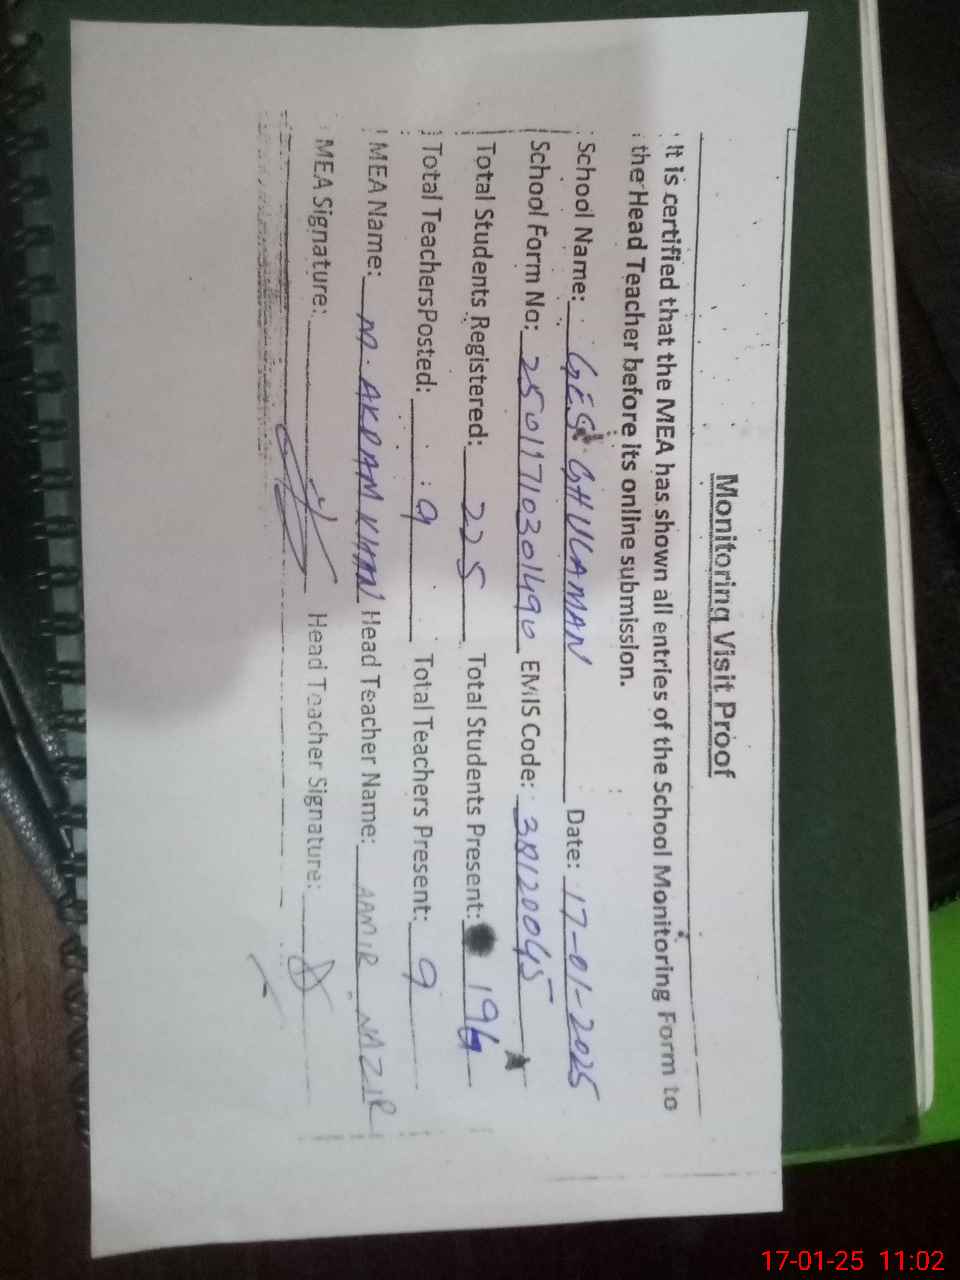 Monitoring Visit Proof
It is certified that the MEA has shown all entries of the School Monitoring Form to
the Head Teacher before its online submission.
School Name: GES GHULAMAN Date: 17-01-2025
School Form No: 2501171030 1490 EMIS Code: 38120045
Total Students Registered: 225 Total Students Present: 194
Total TeachersPosted: 9 Total Teachers Present: 9
MEA Name: M. AKRAM KHAN Head Teacher Name: AAMIR NAZIR
MEA Signature: Head Teacher Signature:
17-01-25 11:02